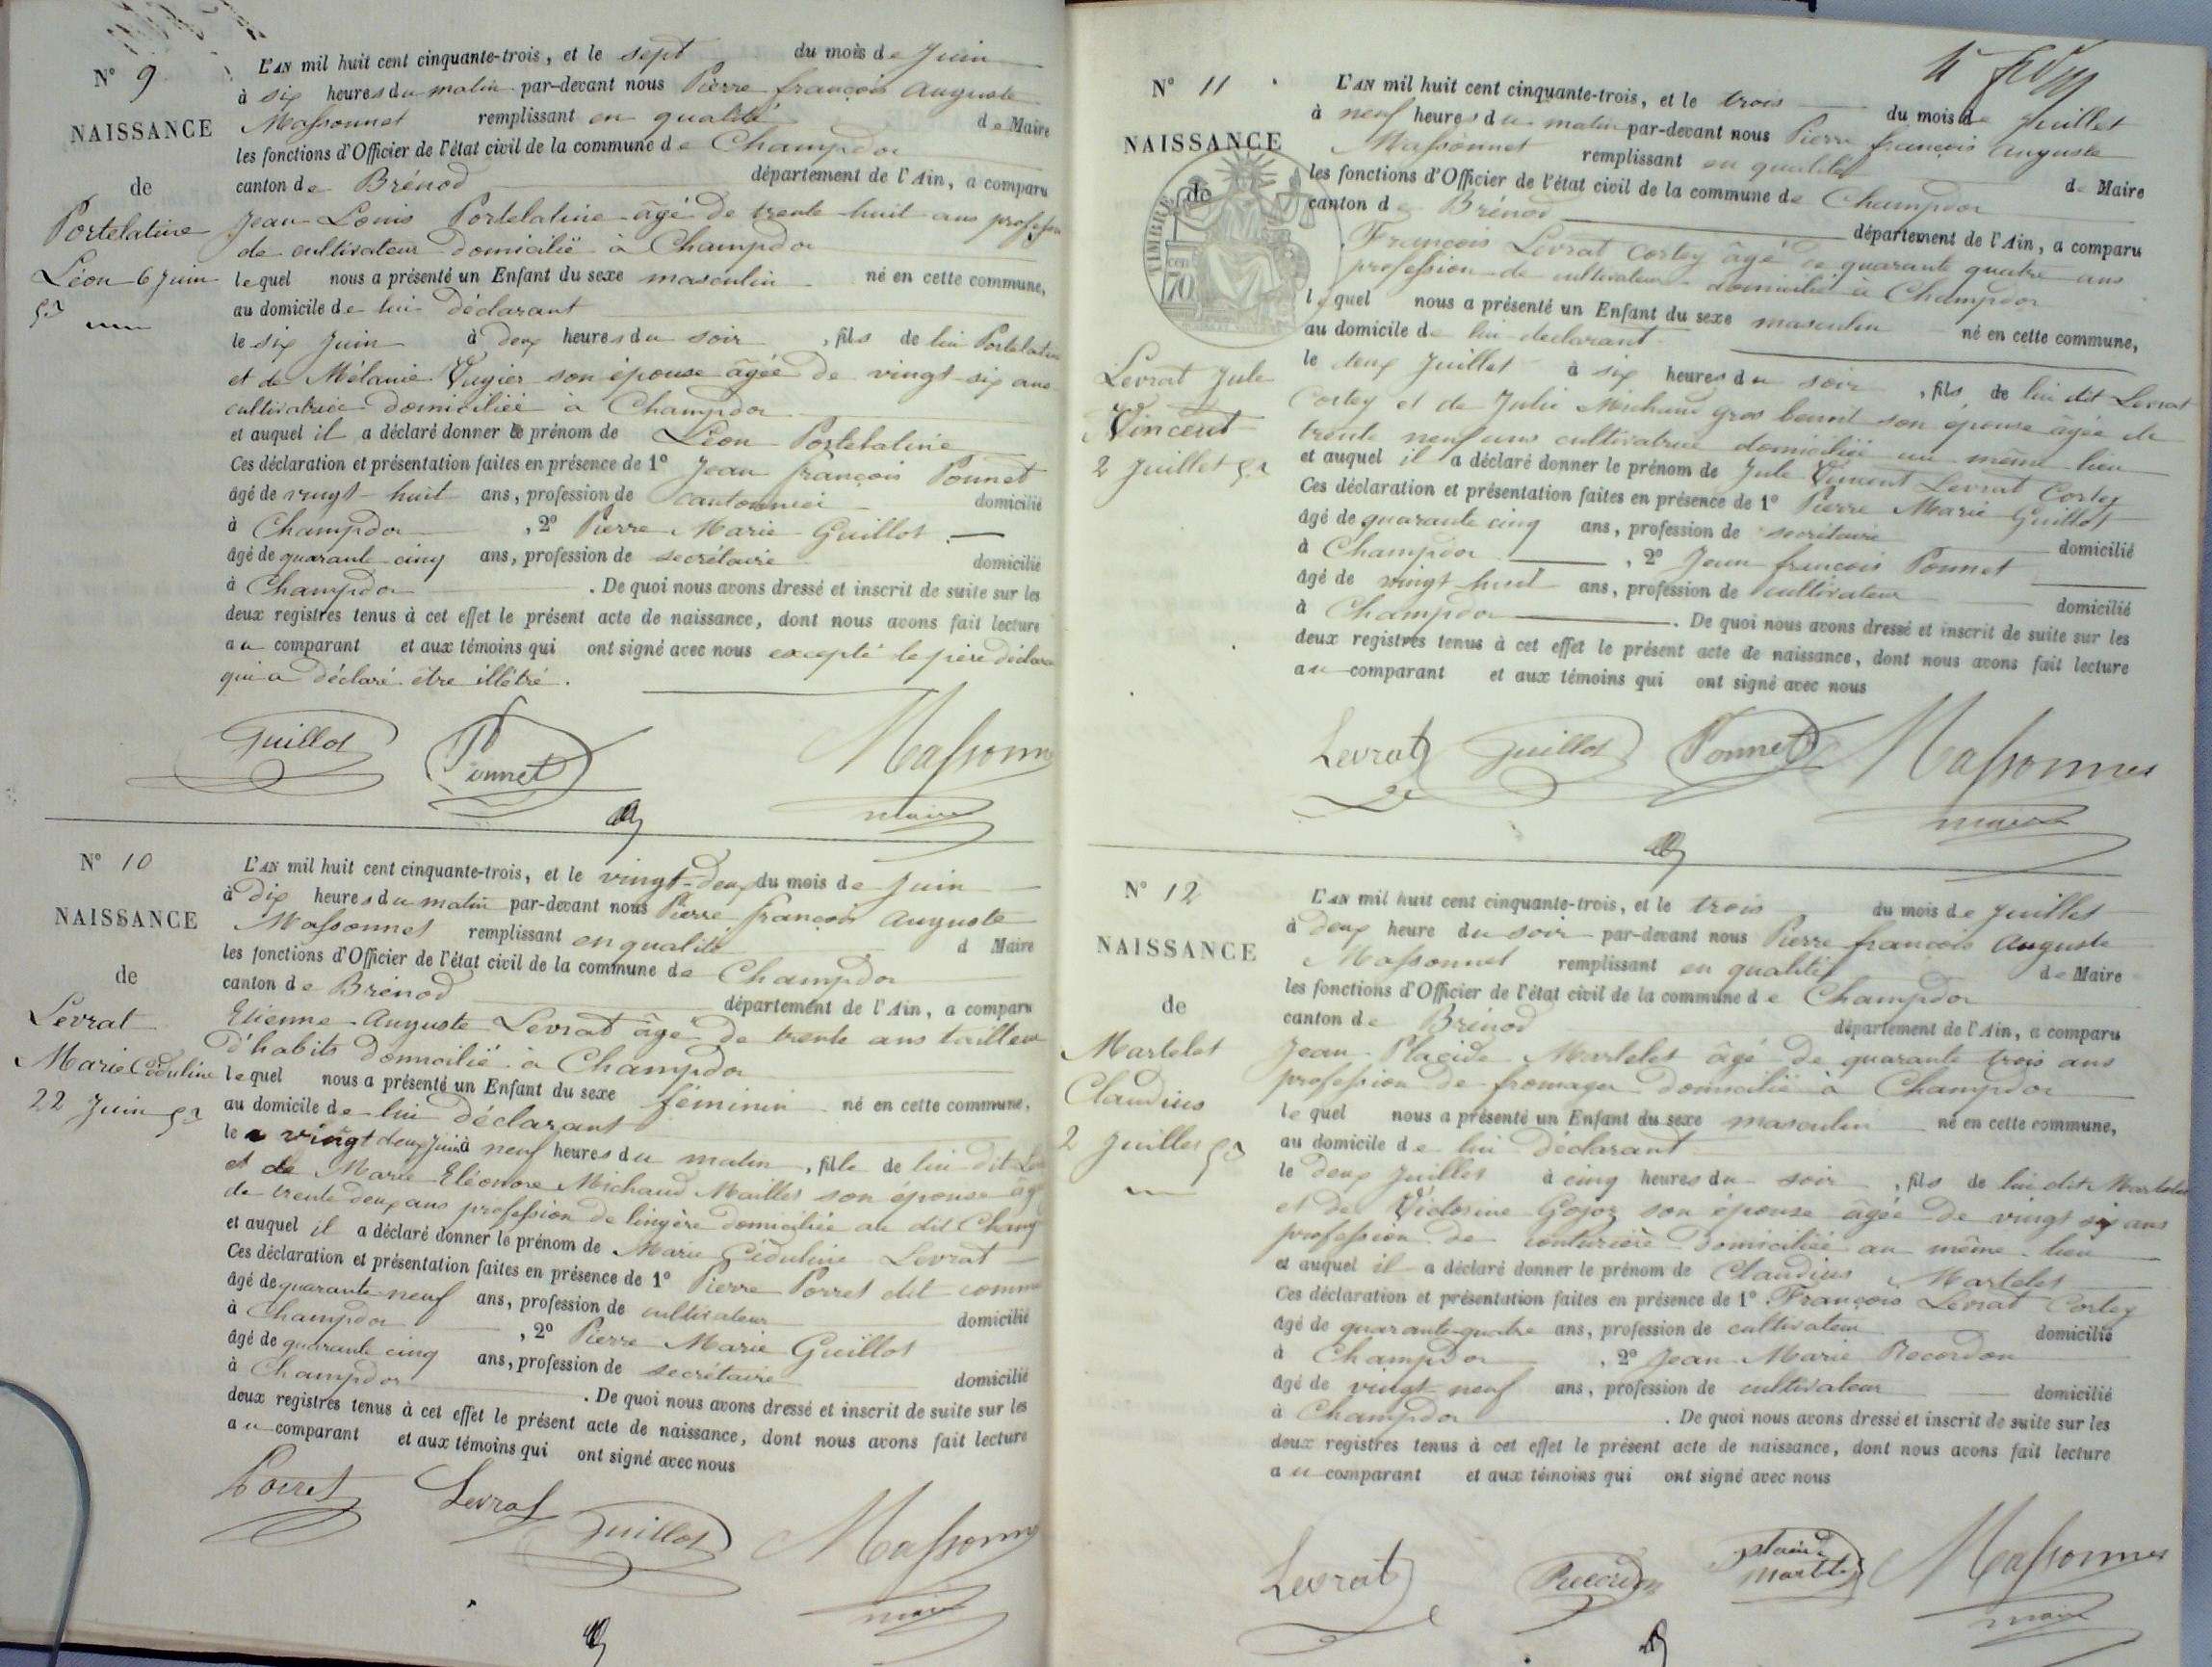 N° 9
NAISSANCE
de
Portelatine
Léon 6 Juin
53
L'AN mil huit cent cinquante-trois, et le sept du mois de Juin
à six heures du matin par-devant nous Pierre françois Auguste
Massonnet remplissant en qualité de Maire
les fonctions d'Officier de l'état civil de la commune de Champdor
canton de Brénod département de l'Ain, a comparu
Jean Louis Portelatine âgé de trente huit ans profession
de cultivateur domicilié à Champdor
lequel nous a présenté un Enfant du sexe masculin né en cette commune,
au domicile de lui déclarant
le six Juin à deux heures du soir, fils de lui Portelatine
et de Mélanie Vugier son épouse âgée de vingt-six ans
cultivatrice domiciliée à Champdor
et auquel il a déclaré donner le prénom de Léon Portelatine
Ces déclaration et présentation faites en présence de 1° Jean françois Ponnet
âgé de vingt-huit ans, profession de cantonnier domicilié
à Champdor, 2° Pierre Marie Guillot
âgé de quarante cinq ans, profession de secrétaire domicilié
à Champdor. De quoi nous avons dressé et inscrit de suite sur les
deux registres tenus à cet effet le présent acte de naissance, dont nous avons fait lecture
au comparant et aux témoins qui ont signé avec nous excepté le père déclara
qui a déclaré être illétré.
Guillot Ponnet Massonn
maire
N° 10
NAISSANCE
de
Levrat
Marie Céduline
22 Juin 53
L'AN mil huit cent cinquante-trois, et le vingt-deux du mois de Juin
à dix heures du matin par-devant nous Pierre françois Auguste
Massonnet remplissant en qualité d Maire
les fonctions d'Officier de l'état civil de la commune de Champdor
canton de Brénod département de l'Ain, a comparu
Etienne Auguste Levrat âgé de trente ans tailleur
d'habits domicilié à Champdor
lequel nous a présenté un Enfant du sexe féminin né en cette commune,
au domicile de lui déclarant
le vingt deux Juin à neuf heures du matin, fille de lui dit Le
et de Marie Eléonore Michaud Maillet son épouse âg
de trente deux ans profession de lingère domiciliée au dit Champ
et auquel il a déclaré donner le prénom de Marie Céduline Levrat
Ces déclaration et présentation faites en présence de 1° Pierre Porret dit comm
âgé de quarante neuf ans, profession de cultivateur domicilié
à Champdor, 2° Pierre Marie Guillot
âgé de quarante cinq ans, profession de secrétaire domicilié
à Champdor. De quoi nous avons dressé et inscrit de suite sur les
deux registres tenus à cet effet le présent acte de naissance, dont nous avons fait lecture
au comparant et aux témoins qui ont signé avec nous
Porret Levrat Guillot Massonn
maire
N° 11
NAISSANCE
de
TIMBRE
70 cen
Levrat Jule
Vincent
2 Juillet 53
L'AN mil huit cent cinquante-trois, et le trois du mois de Juillet
à neuf heures du matin par-devant nous Pierre françois Auguste
Massonnet remplissant en qualité de Maire
les fonctions d'Officier de l'état civil de la commune de Champdor
canton de Brénod département de l'Ain, a comparu
François Levrat Cortey âgé de quarante quatre ans
profession de cultivateur domicilié à Champdor
lequel nous a présenté un Enfant du sexe masculin né en cette commune,
au domicile de lui declarant
le deux Juillet à six heures du soir, fils de lui dit Levrat
Cortey et de Julie Michaud gros benoit son épouse âgée de
trente neuf ans cultivatrice domiciliée au même lieu
et auquel il a déclaré donner le prénom de Jule Vincent Levrat Cortey
Ces déclaration et présentation faites en présence de 1° Pierre Marie Guillot
âgé de quarante cinq ans, profession de secrétaire domicilié
à Champdor, 2° Jean françois Ponnet
âgé de vingt huit ans, profession de cultivateur domicilié
à Champdor. De quoi nous avons dressé et inscrit de suite sur les
deux registres tenus à cet effet le présent acte de naissance, dont nous avons fait lecture
au comparant et aux témoins qui ont signé avec nous
Levrat Guillot Ponnet Massonnet
maire
N° 12
NAISSANCE
de
Martelet
Claudius
2 Juillet 53
L'AN mil huit cent cinquante-trois, et le trois du mois de Juillet
à deux heure du soir par-devant nous Pierre françois Auguste
Massonnet remplissant en qualité de Maire
les fonctions d'Officier de l'état civil de la commune de Champdor
canton de Brénod département de l'Ain, a comparu
Jean Placide Martelet âgé de quarante trois ans
profession de fromager domicilié à Champdor
lequel nous a présenté un Enfant du sexe masculin né en cette commune,
au domicile de lui déclarant
le deux Juillet à cinq heures du soir, fils de lui dit Martelet
et de Victorine Gojoz son épouse âgée de vingt six ans
profession de couturière domiciliée au même lieu
et auquel il a déclaré donner le prénom de Claudius Martelet
Ces déclaration et présentation faites en présence de 1° François Levrat Cortey
âgé de quarante-quatre ans, profession de cultivateur domicilié
à Champdor, 2° Jean Marie Recordon
âgé de vingt neuf ans, profession de cultivateur domicilié
à Champdor. De quoi nous avons dressé et inscrit de suite sur les
deux registres tenus à cet effet le présent acte de naissance, dont nous avons fait lecture
au comparant et aux témoins qui ont signé avec nous
Levrat Recordon placide Martelet Massonnet
maire